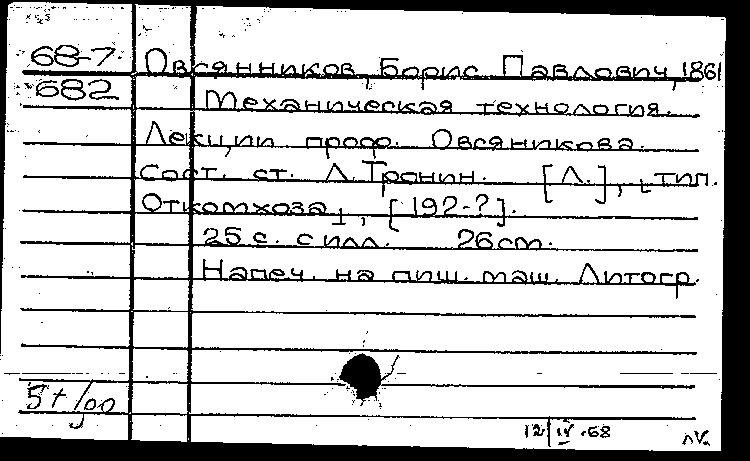 68-7 Овсянников, Борис Павлович, 1861
682 Механическая технология.
Лекции проф. Овсяникова.
Сост. ст. Л. Тронин. [Л.], "тип.
Откомхоза", [192-?].
25 с. с илл. 26 см.
Напеч. на пиш. маш. Литогр.
5+/00
12/IV.68